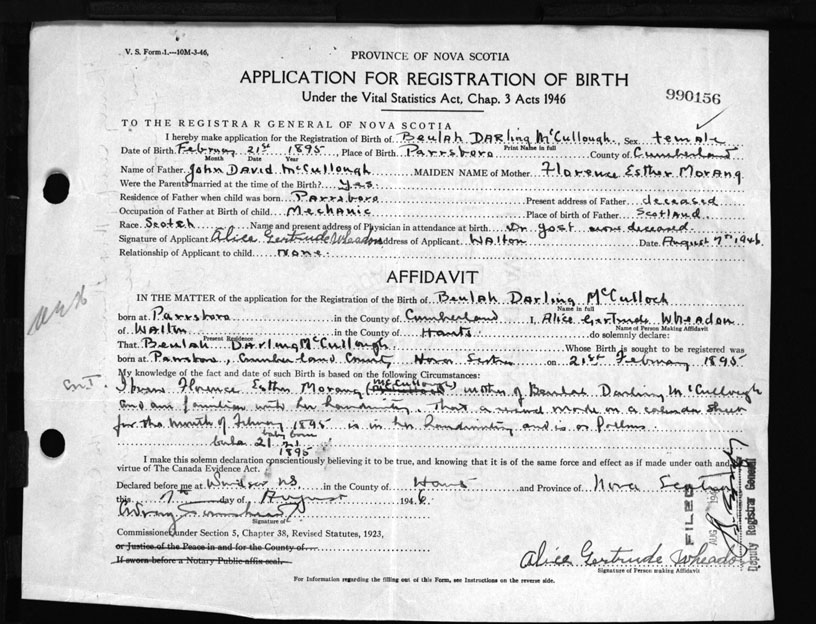 V. S. Form 1.—10M-3-46.
PROVINCE OF NOVA SCOTIA
APPLICATION FOR REGISTRATION OF BIRTH
990156
Under the Vital Statistics Act, Chap. 3 Acts 1946
TO THE REGISTRAR GENERAL OF NOVA SCOTIA
I hereby make application for the Registration of Birth of Beulah Darling McCullough, Sex female
Print Name in full
Date of Birth February 21st 1895, Place of Birth Parrsboro County of Cumberland
Month Date Year
Name of Father John David McCullough MAIDEN NAME of Mother Florence Esther Morang
Were the Parents married at the time of the Birth? Yes
Residence of Father when child was born Parrsboro Present address of Father deceased
Occupation of Father at Birth of child Mechanic Place of birth of Father Scotland
Race Scotch Name and present address of Physician in attendance at birth Dr Jost now deceased
Signature of Applicant Alice Gertrude Wheadon Address of Applicant Walton Date August 7th 1946
Relationship of Applicant to child None
AFFIDAVIT
IN THE MATTER of the application for the Registration of the Birth of Beulah Darling McCulloch
Name in full
born at Parrsboro in the County of Cumberland I, Alice Gertrude Wheadon
Name of Person Making Affidavit
of Walton in the County of Hants do solemnly declare:
Present Residence
That Beulah Darling McCullough Whose Birth is sought to be registered was
born at Parrsboro, Cumberland County Nova Scotia on 21st February 1895
My knowledge of the fact and date of such Birth is based on the following Circumstances:
I know Florence Esther Morang (McCullough) mother of Beulah Darling McCullough
and am familiar with her handwriting. That a record made on a calendar sheet
for the month of February 1895 is in her handwriting and is as follows
baby born
21
1895
I make this solemn declaration conscientiously believing it to be true, and knowing that it is of the same force and effect as if made under oath and by
virtue of The Canada Evidence Act.
Declared before me at Windsor NS in the County of Hants and Province of Nova Scotia
this 7th day of August 1946
Signature of
Commissioner under Section 5, Chapter 38, Revised Statutes, 1923,
or Justice of the Peace in and for the County of
If sworn before a Notary Public affix seal.
Alice Gertrude Wheadon
Signature of Person making Affidavit
FILED
AUG
Deputy Registrar General
For Information regarding the filling out of this Form, see Instructions on the reverse side.